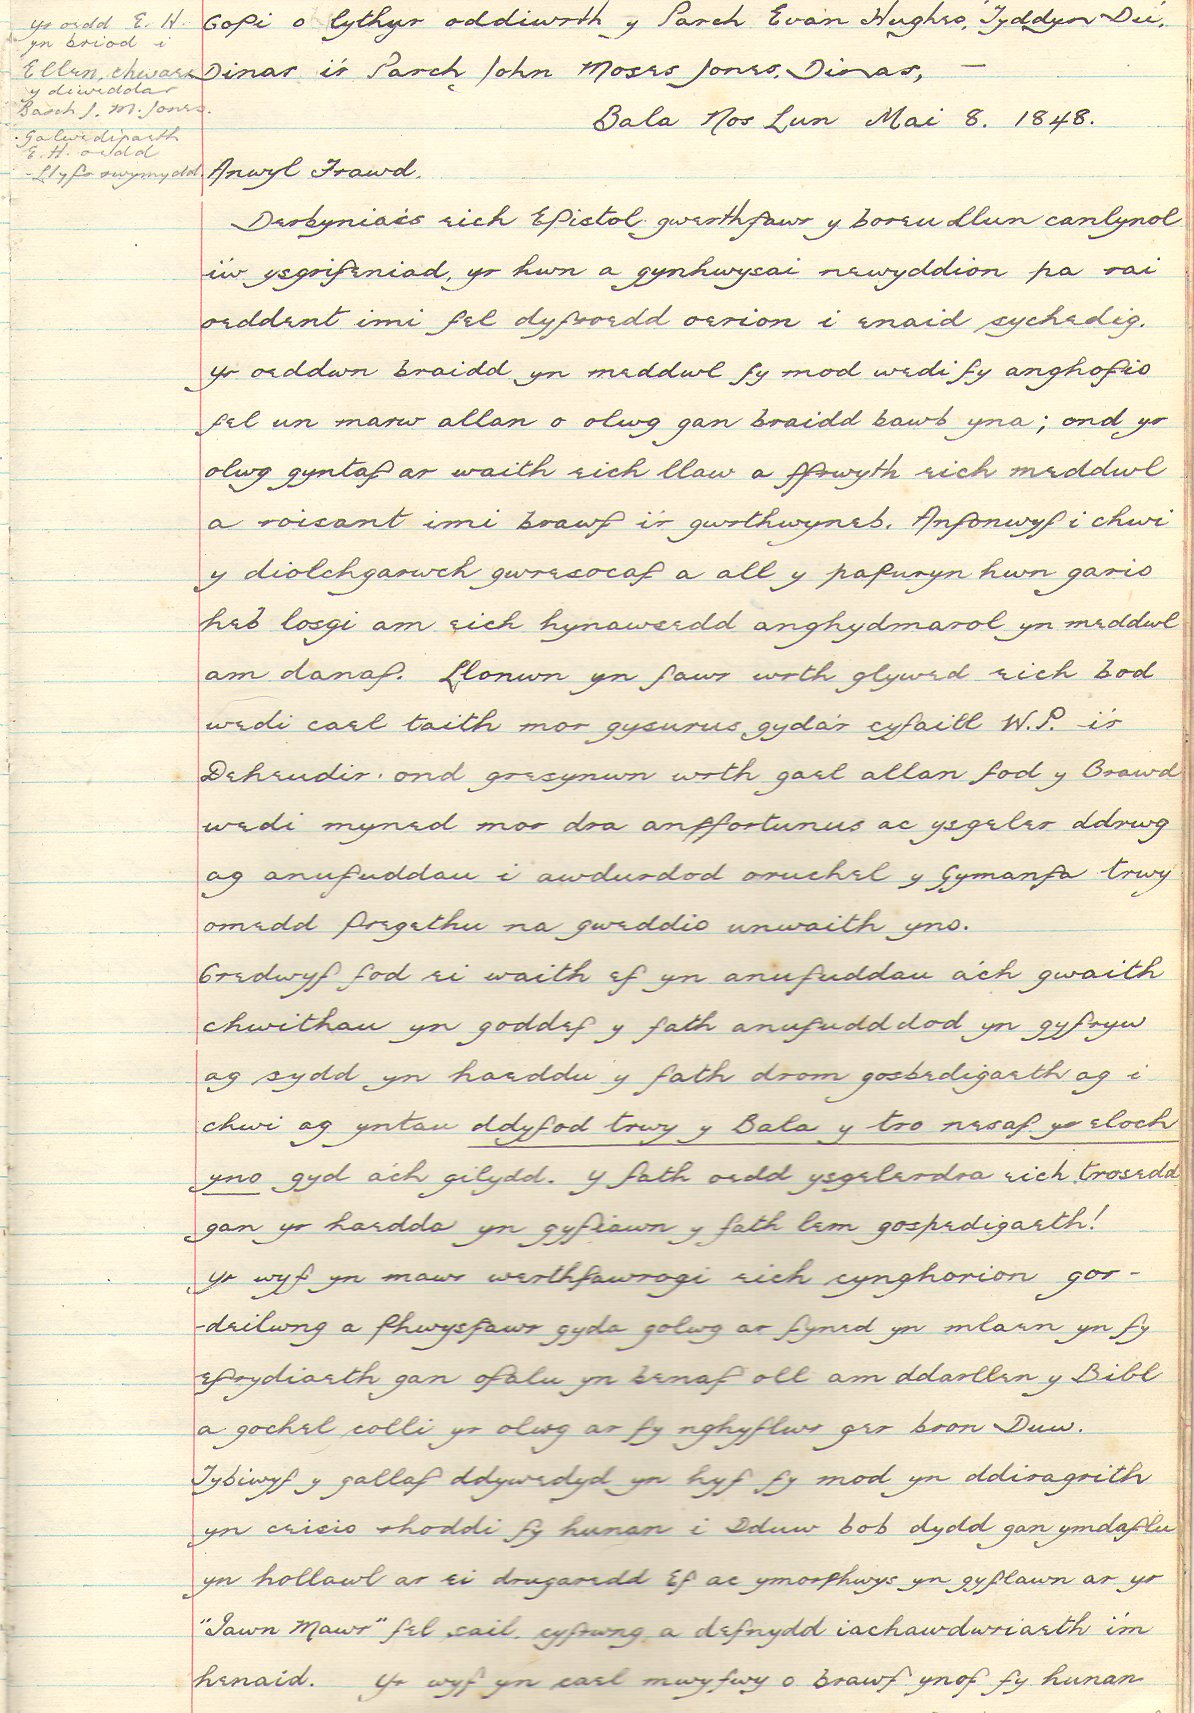 Yr oedd E. H.
yn briod i
Ellen, chwaer
y diweddar
Barch J. M. Jones.
Galwedigaeth
E. H. oedd
-Llyfr rwymydd.
Copi o lythyr oddiwrth y Parch Evan Hughes, Tyddyn Du,
Dinas i'r Parch John Moses Jones, Dinas, —
Bala Nos Lun Mai 8. 1848.
Anwyl Frawd.
Derbyniais eich Epistol gwerthfawr y boreu dLlun canlynol
i'w ysgrifeniad, yr hwn a gynhwysai newyddion pa rai
oeddent imi fel dyfroedd oerion i enaid sychedig.
Yr oeddwn braidd yn meddwl fy mod wedi fy anghofio
fel un marw allan o olwg gan braidd bawb yna; ond yr
olwg gyntaf ar waith eich llaw a ffrwyth eich meddwl
a roisant imi brawf i'r gwrthwyneb. Anfonwyf i chwi
y diolchgarwch gwresocaf a all y papuryn hwn gario
heb losgi am eich hynawsedd anghydmarol yn meddwl
am danaf. Llonwn yn fawr wrth glywed eich bod
wedi cael taith mor gysurus gyda'r cyfaill W.P. i'r
Deheudir. ond gresynwn wrth gael allan fod y Brawd
wedi myned mor dra anffortunus ac ysgeler ddrwg
ag anufuddau i awdurdod oruchel y Gymanfa trwy
omedd pregethu na gweddio unwaith yno.
Credwyf fod ei waith ef yn anufuddau a'ch gwaith
chwithau yn goddef y fath anufudddod yn gyfryw
ag sydd yn haeddu y fath drom gosbedigaeth ag i
chwi ag yntau ddyfod trwy y Bala y tro nesaf yr eloch
yno gyd a'ch gilydd. Y fath oedd ysgelerdra eich trosedd
gan yr haedda yn gyfiawn y fath lem gospedigaeth!
Yr wyf yn mawr werthfawrogi eich cynghorion gor-
-deilwng a phwysfawr gyda golwg ar fyned yn mlaen yn fy
efrydiaeth gan ofalu yn benaf oll am ddarllen y Bibl
a gochel colli yr olwg ar fy nghyflwr ger bron Duw.
Tybiwyf y gallaf ddywedyd yn hyf fy mod yn ddiragrith
yn ceisio rhoddi fy hunan i Dduw bob dydd gan ymdaflu
yn hollawl ar ei drugaredd Ef ac ymorphwys yn gyflawn ar yr
"Iawn Mawr" fel sail. cyfrwng a defnydd iachawdwriaeth i'm
henaid. Yr wyf yn cael mwyfwy o brawf ynof fy hunan